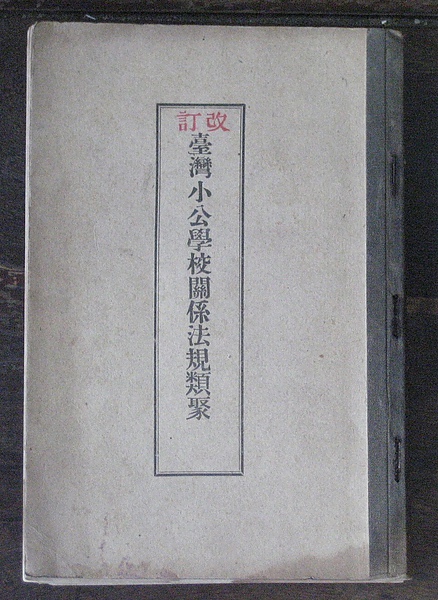 改訂
臺灣小公學校關係法規類聚